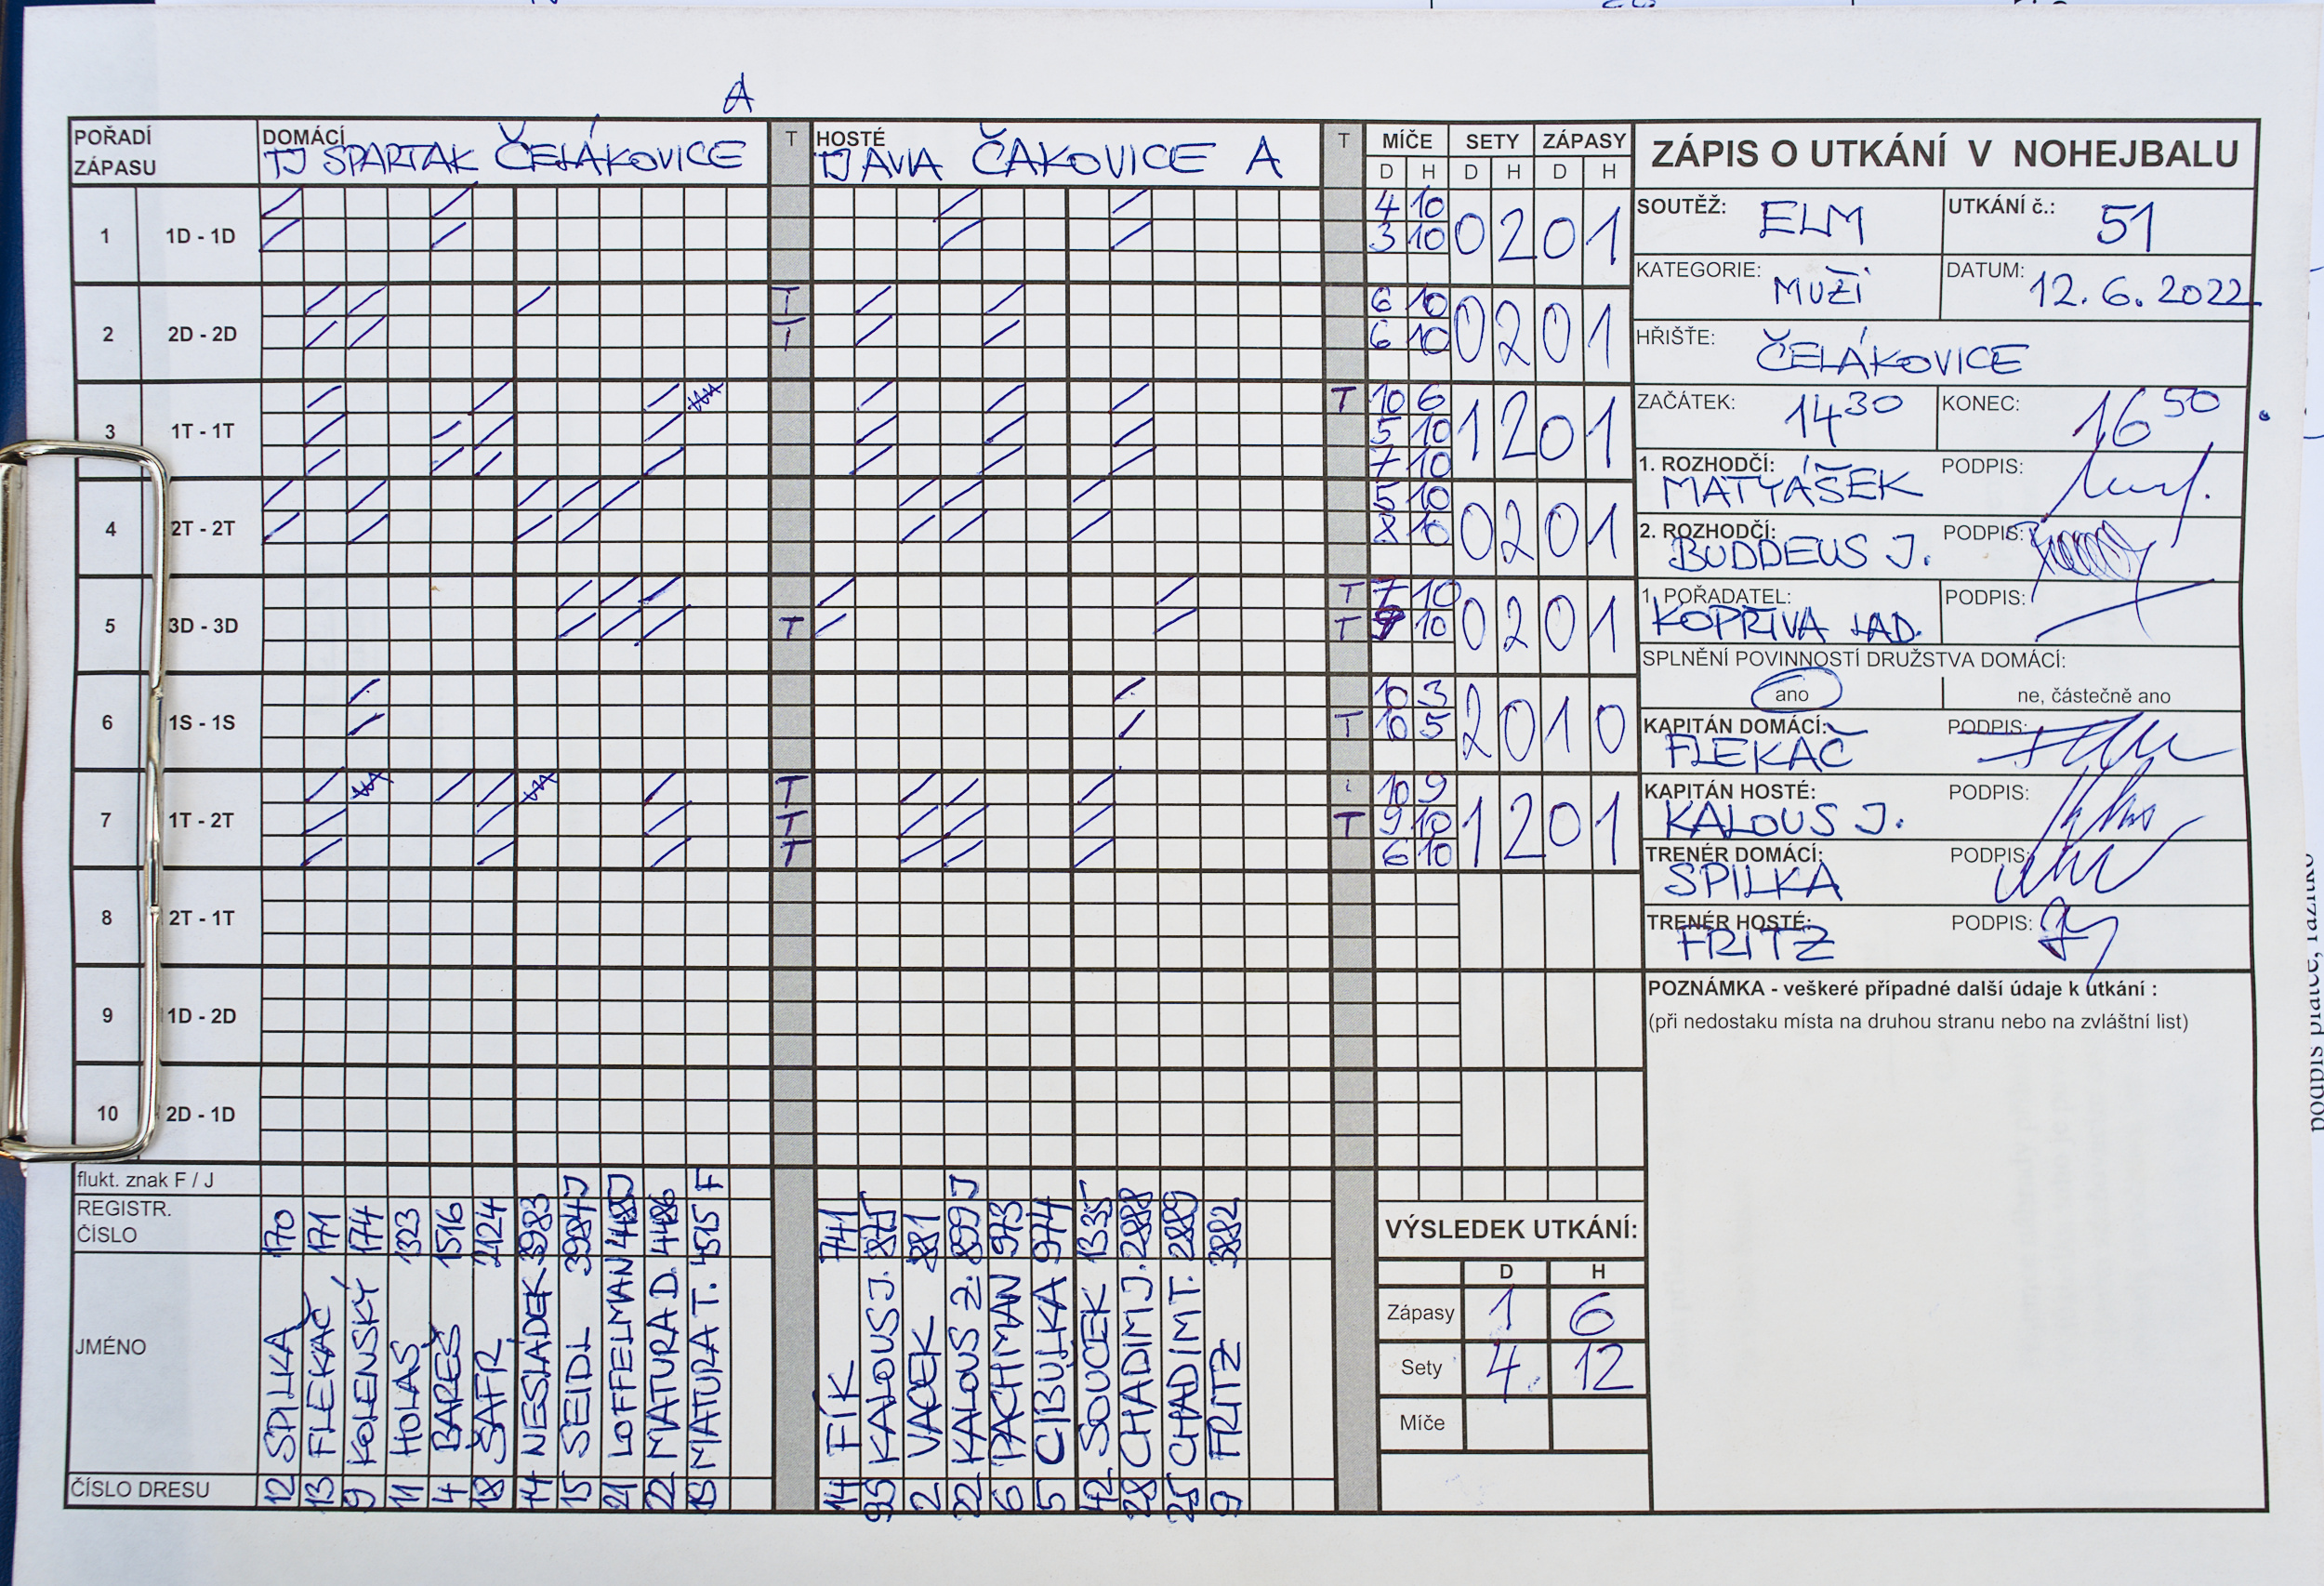 A
POŘADÍ ZÁPASU
DOMÁCÍ
TJ SPARTAK ČELÁKOVICE
T
HOSTÉ
TJ AVIA ČAKOVICE A
T
MÍČE SETY ZÁPASY
D H D H D H
1 1D - 1D
4 10
3 10
0 2 0 1
2 2D - 2D
T
T
6 10
6 10
0 2 0 1
3 1T - 1T
T
10 6
5 10
7 10
1 2 0 1
4 2T - 2T
5 10
8 10
0 2 0 1
5 3D - 3D
T
T
T
7 10
9 10
0 2 0 1
6 1S - 1S
T
10 3
10 5
2 0 1 0
7 1T - 2T
T
T
T
T
10 9
9 10
6 10
1 2 0 1
8 2T - 1T
9 1D - 2D
10 2D - 1D
flukt. znak F / J
REGISTR. ČÍSLO
JMÉNO
ČÍSLO DRESU
12 SPILKA 170
13 FLEKAČ 171
9 KOLENSKÝ 174
11 HOLAS 1323
4 BAREŠ 1516
18 ŠAFR 2124
14 NESLÁDEK 3983
15 SEIDL 3984 J
21 LOFFELMAN 4485 J
22 MATURA D. 4486
15 MATURA T. 4515 F
14 FÍK 741
95 KALOUS J. 875
2 VACEK 881
22 KALOUS Z. 899 J
6 PACHMAN 973
5 CIBULKA 974
42 SOUČEK 1335
28 CHADIM J. 2888
25 CHADIM T. 2889
9 FRITZ 3882
VÝSLEDEK UTKÁNÍ:
D H
Zápasy 1 6
Sety 4 12
Míče
ZÁPIS O UTKÁNÍ V NOHEJBALU
SOUTĚŽ: ELM
UTKÁNÍ č.: 51
KATEGORIE: MUŽI
DATUM: 12. 6. 2022
HŘIŠTĚ: ČELÁKOVICE
ZAČÁTEK: 14 30
KONEC: 16 50
1. ROZHODČÍ: MATYÁŠEK
PODPIS:
2. ROZHODČÍ: BUDDEUS J.
PODPIS:
1. POŘADATEL: KOPŘIVA LAD.
PODPIS:
SPLNĚNÍ POVINNOSTÍ DRUŽSTVA DOMÁCÍ:
ano
ne, částečně ano
KAPITÁN DOMÁCÍ: FLEKAČ
PODPIS:
KAPITÁN HOSTÉ: KALOUS J.
PODPIS:
TRENÉR DOMÁCÍ: SPILKA
PODPIS:
TRENÉR HOSTÉ: FRITZ
PODPIS:
POZNÁMKA - veškeré případné další údaje k utkání :
(při nedostaku místa na druhou stranu nebo na zvláštní list)
podpis plátce, razítko